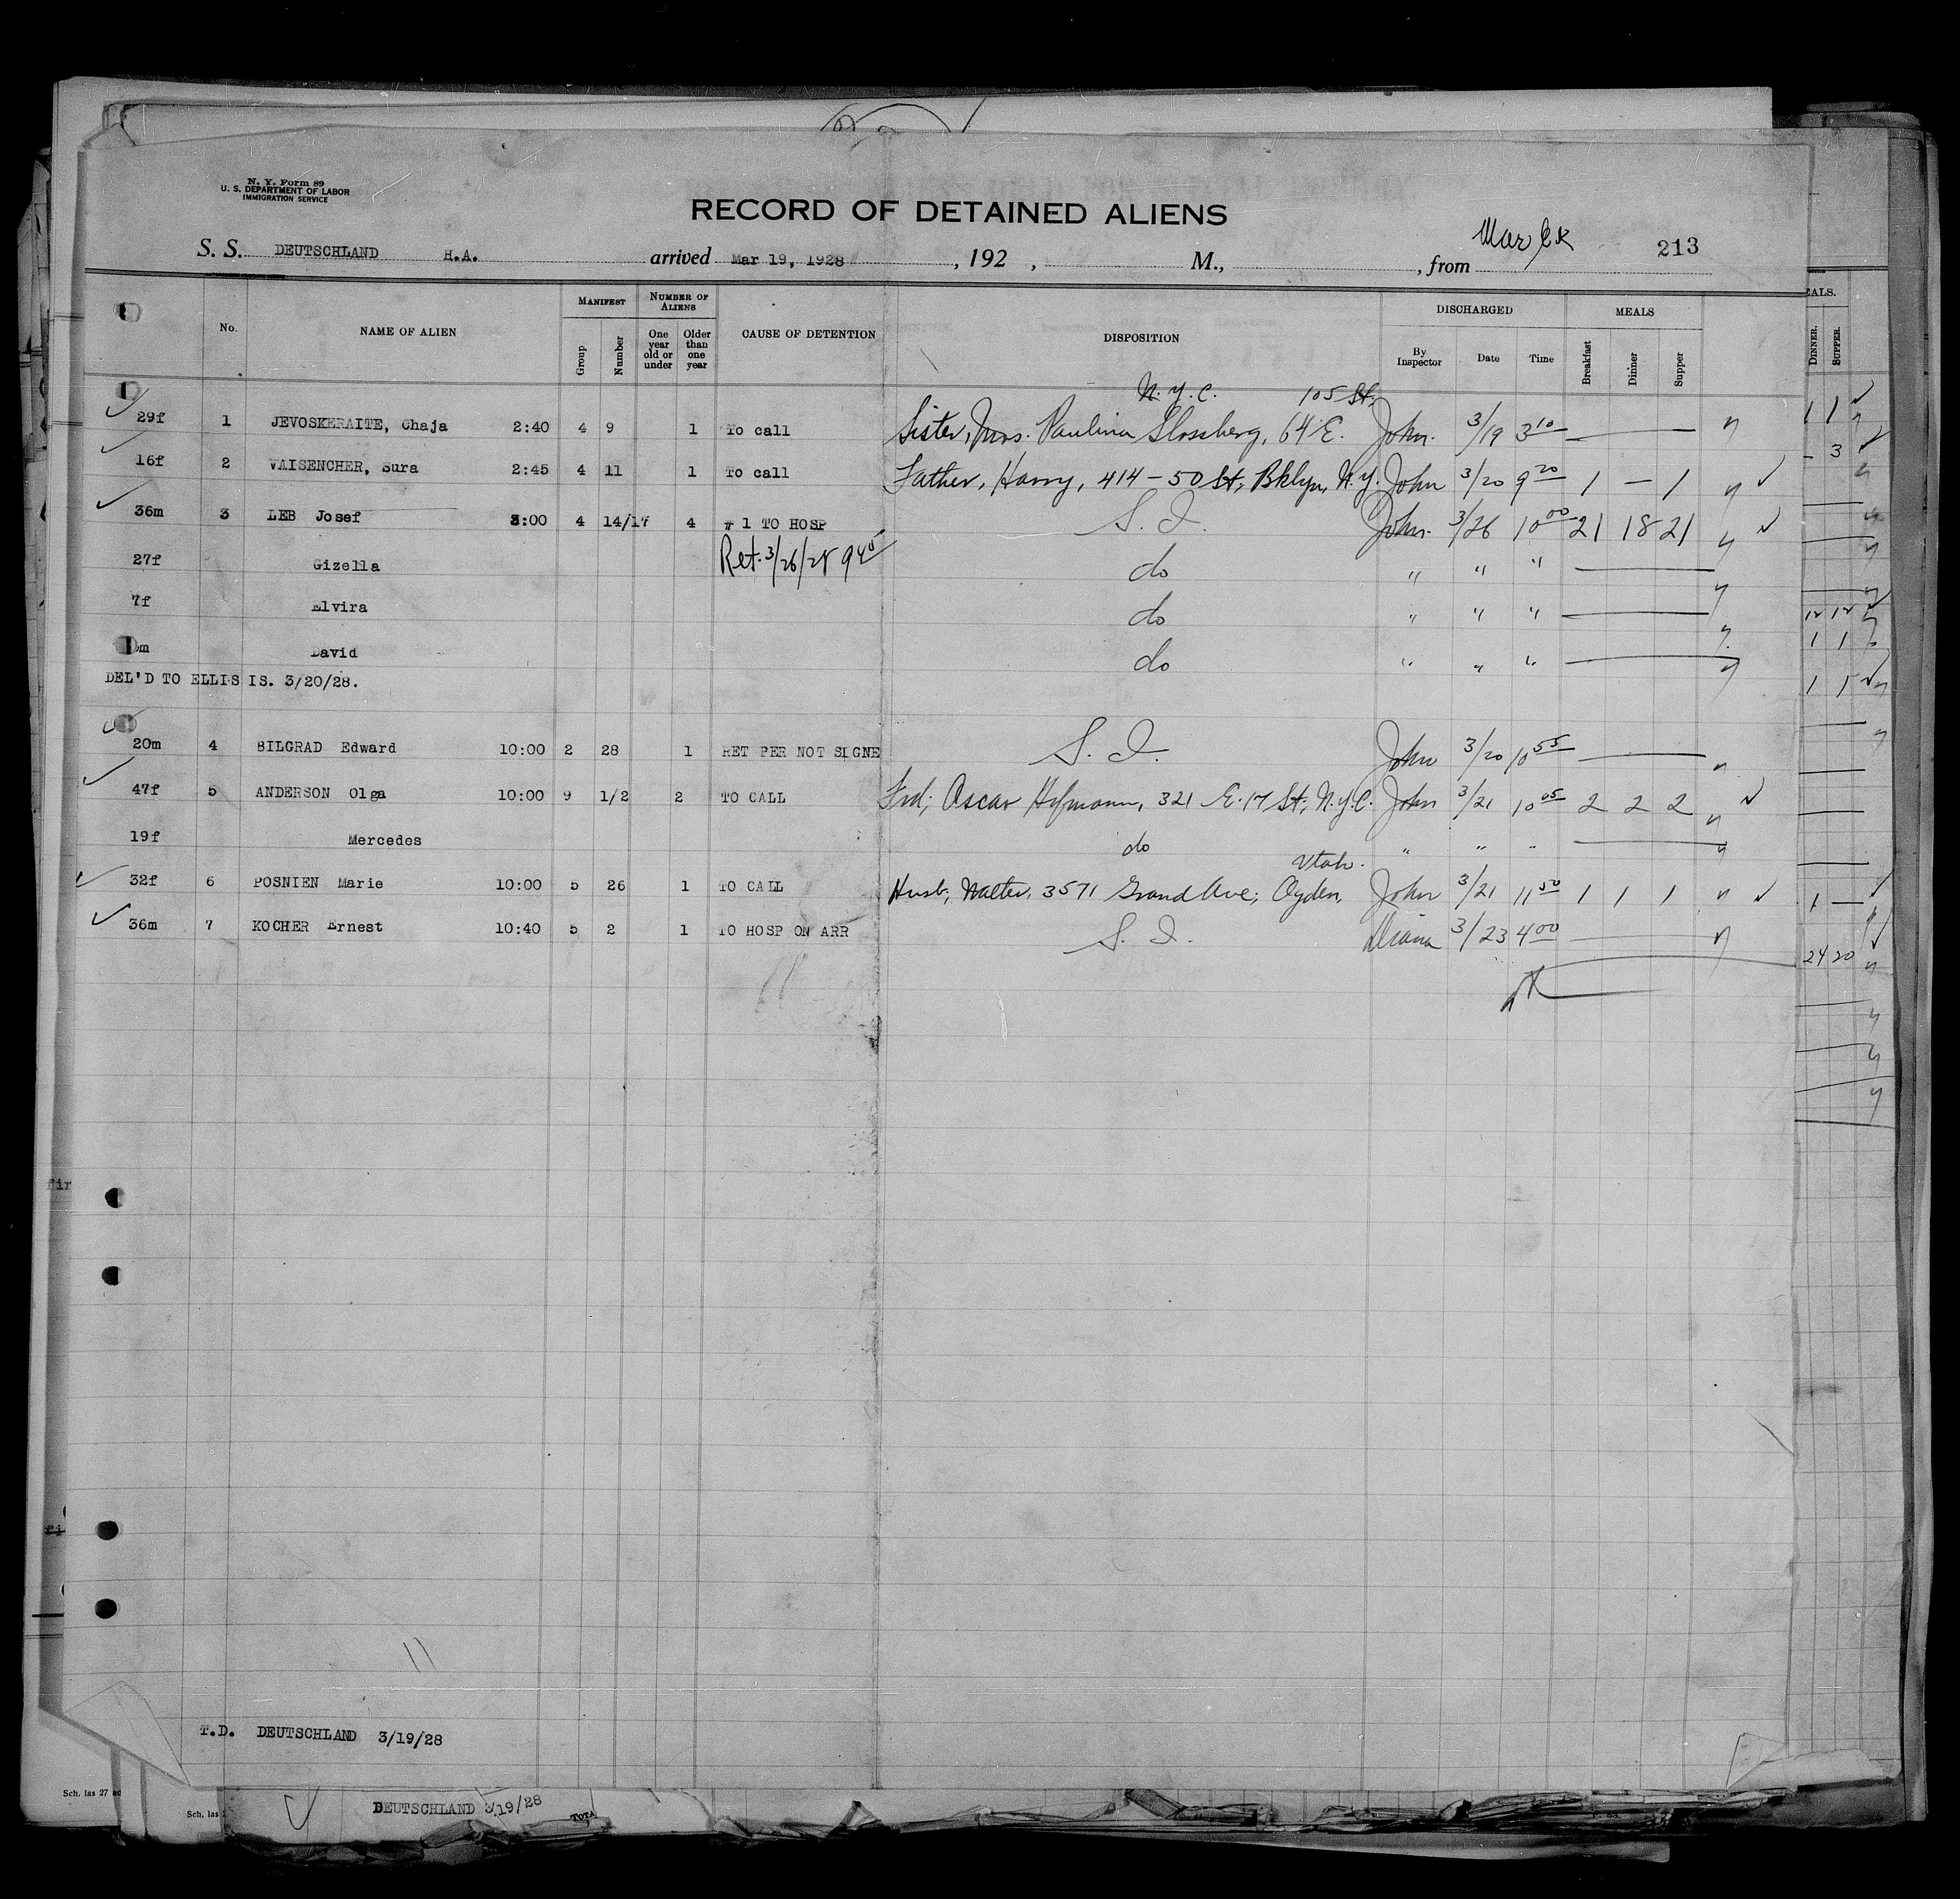 N. Y. Form 89
U. S. DEPARTMENT OF LABOR
IMMIGRATION SERVICE
RECORD OF DETAINED ALIENS
S. S. DEUTSCHLAND H.A. arrived Mar 19, 1928 , 192 , M., , from 213
No. NAME OF ALIEN MANIFEST Group Number NUMBER OF ALIENS One year old or under Older than one year CAUSE OF DETENTION DISPOSITION DISCHARGED By Inspector Date Time MEALS Breakfast Dinner Supper
EALS. DINNER. SUPPER.
N.Y.C. 105 St.
29f 1 JEVOSKERAITE, Chaja 2:40 4 9 1 To call Sister, Mrs. Paulina Slossberg, 64 E. John. 3/19 3 10 —
16f 2 VAISENCHER, Sura 2:45 4 11 1 To call Father, Harry, 414 - 50 St, Bklyn, N.Y. John 3/20 9 20 1 — 1
36m 3 LEB Josef 3:00 4 14/17 4 # 1 TO HOSP S. I. John. 3/26 10 00 21 18 21
Ret. 3/26/28 9 40
27f Gizella do " " " —
7f Elvira do " " " —
m David do " " " —
DEL'D TO ELLIS IS. 3/20/28.
20m 4 BILGRAD Edward 10:00 2 28 1 RET PER NOT SIGNE S. I. John 3/20 10 55 —
47f 5 ANDERSON Olga 10:00 9 1/2 2 TO CALL Frd; Oscar Hofmann, 321 E. 17 St; N.Y.C. John 3/21 10 05 2 2 2
19f Mercedes do " " " —
Utah.
32f 6 POSNIEN Marie 10:00 5 26 1 TO CALL Husb; Walter, 3571 Grand Ave; Ogden, John 3/21 11 50 1 1 1
36m 7 KOCHER Ernest 10:40 5 2 1 TO HOSP ON ARR S. I. Diana 3/23 4 00 —
24 20
T.D. DEUTSCHLAND 3/19/28
Sch. las 27
Sch. las
DEUTSCHLAND 3/19/28
TOTA